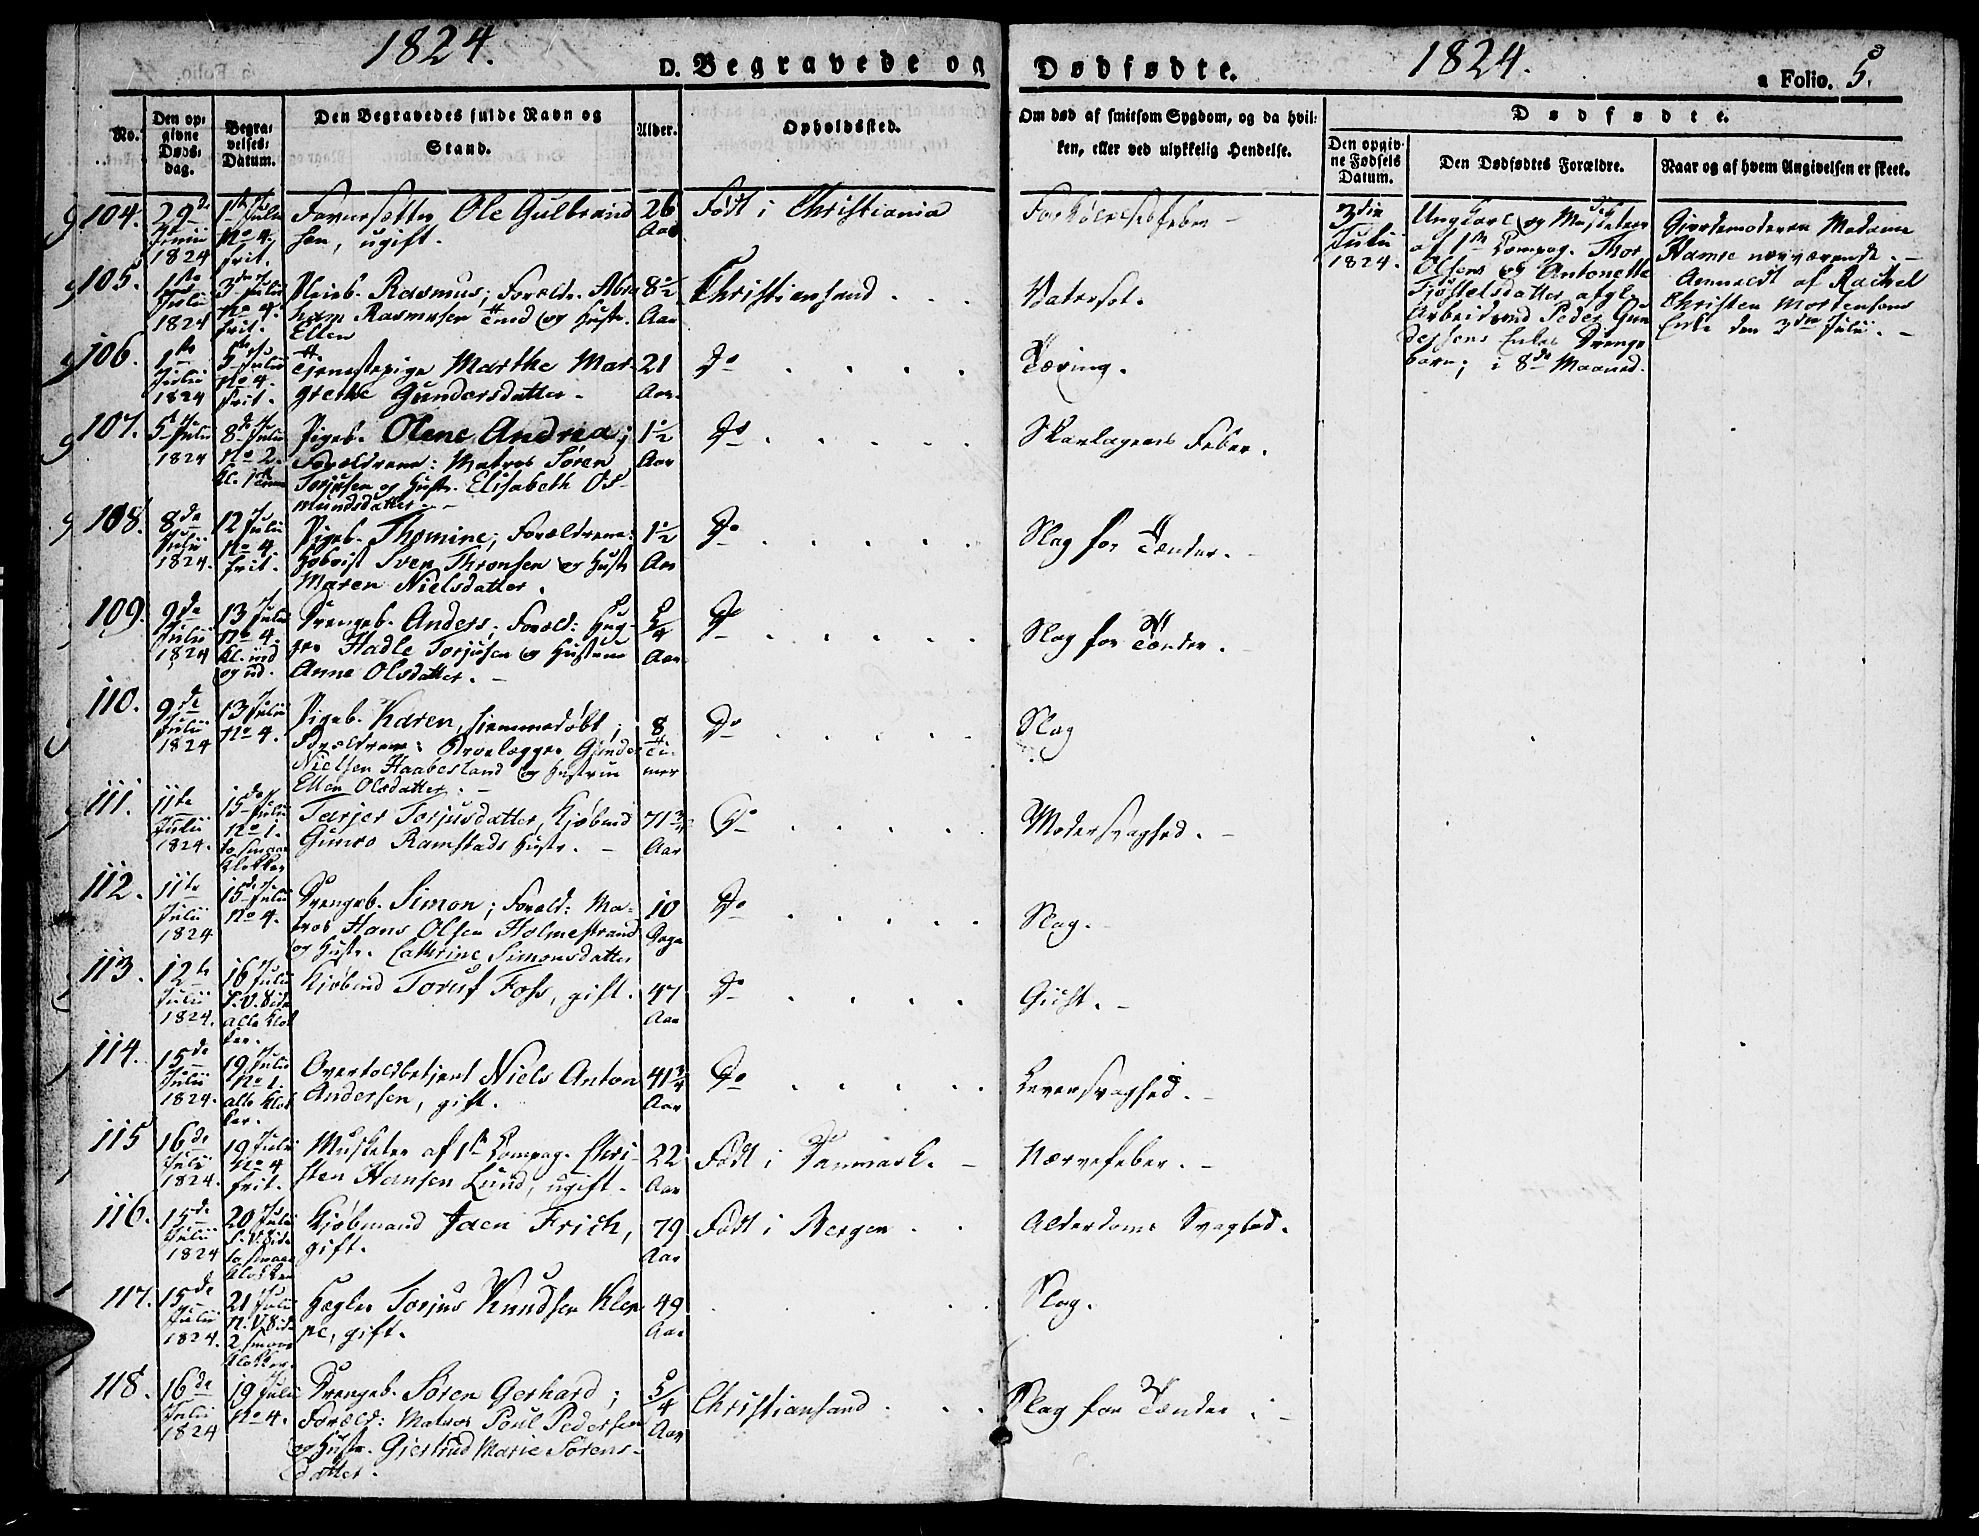 1824.
D. Begravede og
Dødfødte.
1824.
a Folio. 5.
No.
Den opgivne Døds-dag.
Begravelses-Datum.
Den Begravedes fulde Navn og Stand.
Alder.
Opholdssted.
Om død af smitsom Sygdom, og da hvilken, eller ved ulykkelig Hendelse.
Dødfødte.
Den opgivne Fødsels Datum.
Den Dødfødtes Forældre.
Naar og af hvem Angivelsen er skeet.
104. 29de Junii 1824 1ste Julii No 4. frit. Ole Gulbrandsen, ugift. 26 Aar Født i Christiania
105. 1ste Julii 1824 3de Julii No 4. frit. Pleieb. Rasmus; Foreldr. Abraham Rasmusen Tind og Hustr. Ellen 8½ Aar Christiansand Vatersot.
106. 1ste Julii 1824 5te Julii No 4. frit. Tjenestepige Marthe Margrethe Gundersdatter. 21 Aar. Do Tæring.
107. 5te Julii 1824 8de Julii No 2. Pigeb. Olene Andrea; Forældrene: Matros Søren Torjusen og Hustr. Elisabeth Osmundsdatter. 1½ Aar Do Skarlagens Feber.
108. 8de Julii 1824. 12 Julii No 4. frit. Pigeb. Thomine; Forældrene: Sven Thronsen og Hustr Maren Nielsdatter. 1½ Aar Do Slag for Tænder.
109. 9de Julii 1824 13 Julii No 4. Kl. ind og ud. Drengeb. Anders; Foræld: Hadle Torjusen og Hustrue Anne Olsdatter. 5/4 Aar Do Slag for Tænder.
110. 9de Julii 1824 13 Julii No 4. Pigeb. Karen, hjemmedøbt; Forældrene: Gunder Nielsen Haabesland og Hustrue Ellen Olsdatter. 8 Timer Do Slag
111. 11te Julii 1824. 15de Julii No 1. to smaae Klokker Tarjer Torjusdatter, Kjøbmd Gunro Ramstads Hustr. 71¾ Aar Do
112. 11te Julii 1824 15de Julii No 4. Drengeb. Simon; Foræld: Matros Hans Olsen Holmestrand og Hustr. Cathrine Simonsdatter 10 Dage Do Slag.
113. 12te Julii 1824. 16 Julii alle Klokker. Kjøbmd Toruf Foss, gift. 47 Aar Do Gigt.
114. 15de Julii 1824. 19 Julii No 1. alle Klokker. Overtoldbetjent Niels Anton Andersen, gift. 41¾ Aar Do
115 16de Julii 1824. 19 Julii No 4 frit. Musketer af 1ste Compag. Christen Hansen Lund, ugift. 22 Aar Født i Danmark. Nervefeber.
116. 15de Julii 1824 20 Julii to smaae Klokker Kjøbmand Jaen Frich, gift. 79 Aar Født i Bergen Alderdoms Svaghed.
117. 15de Julii 1824. 21 Julii 2 smaae Klokker. Hegler Torjus Knudsen Kleppe, gift. 49 Aar Slag.
118. 16de Julii 1824 19 Julii No 4. Drengeb. Søren Gerhard; Foræld: Matros Poul Pedersen og Hustr. Gjertrud Marie Sørensdatter. 5/4 Aar Christiansand Slag for Tænder
3die Julii 1824.
Ungkarl og Musketeer
af 1ste Compag. Thor
Olsens og Antonette
Arbeidsmd Peder Gundersens Enkes Drengebarn; i 8de Maaned.
Gjordemoderen Madame
Hamre nærværende.
Anmeldt af Rachel
Christen Mortensens
Enke den 3die Julii.